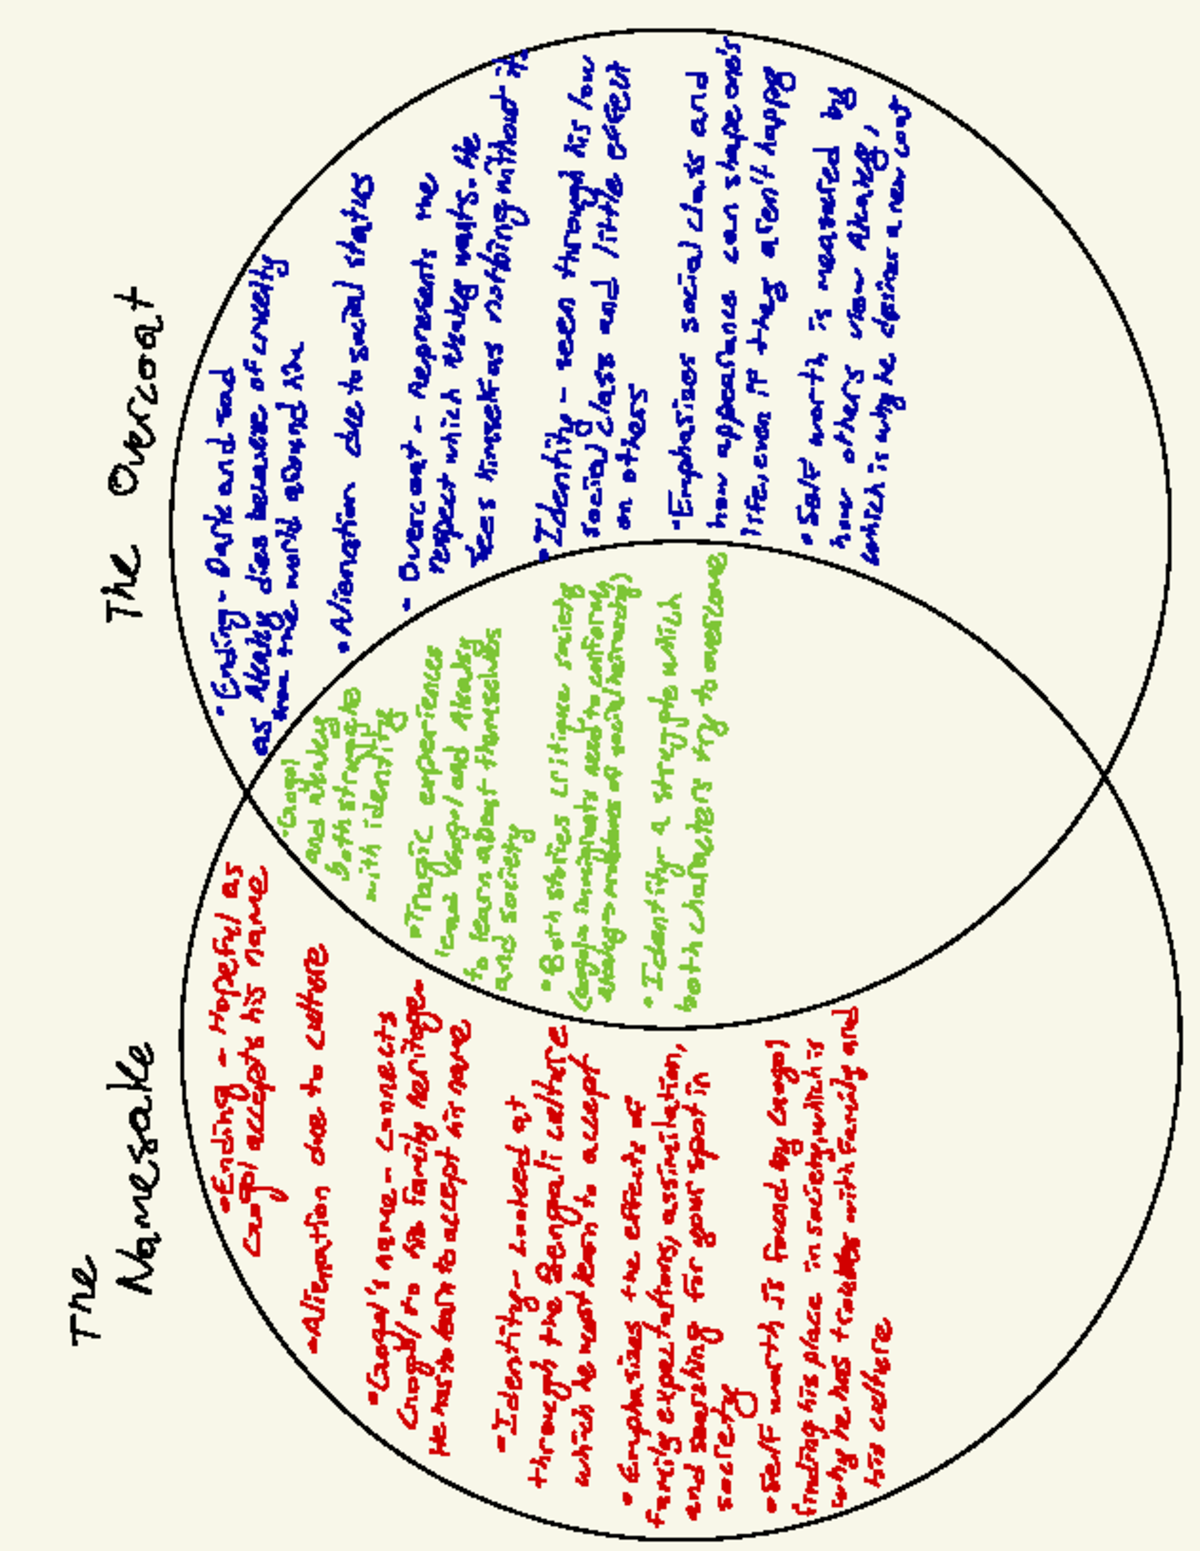 The
Namesake
•Ending - Hopeful as
Gogol accepts his name
•Alienation due to culture
•Gogol's name - connects
Gogol to his family heritage.
He has to learn to accept his name
•Identity - Looked at
through the Bengali culture
which he must learn to accept
•Emphasizes the effects of
family expectations, assimilation,
and searching for your spot in
society
•Self worth is found by Gogol
finding his place in society, which is
why he has troubles with family and
his culture
•Gogol
and Akakey
both struggle
with identity
•Tragic experiences
lead Gogol and Akakey
to learn about themselves
and society
•Both stories critique society
(Gogol→ immigrants need to conform,
Akakey→ problems of social hierarchy)
•Identity a struggle which
both characters try to overcome
The Overcoat
•Ending - Dark and sad
as Akakey dies because of cruelty
from the world around him
•Alienation due to social status
•Overcoat - Represents the
respect which Akakey wants. He
sees himself as nothing without it.
•Identity - seen through his low
social class and little effect
on others
•Emphasizes social class and
how appearance can shape one's
life, even if they aren't happy
•Self worth is measured by
how others view Akakey,
which is why he desires a new coat